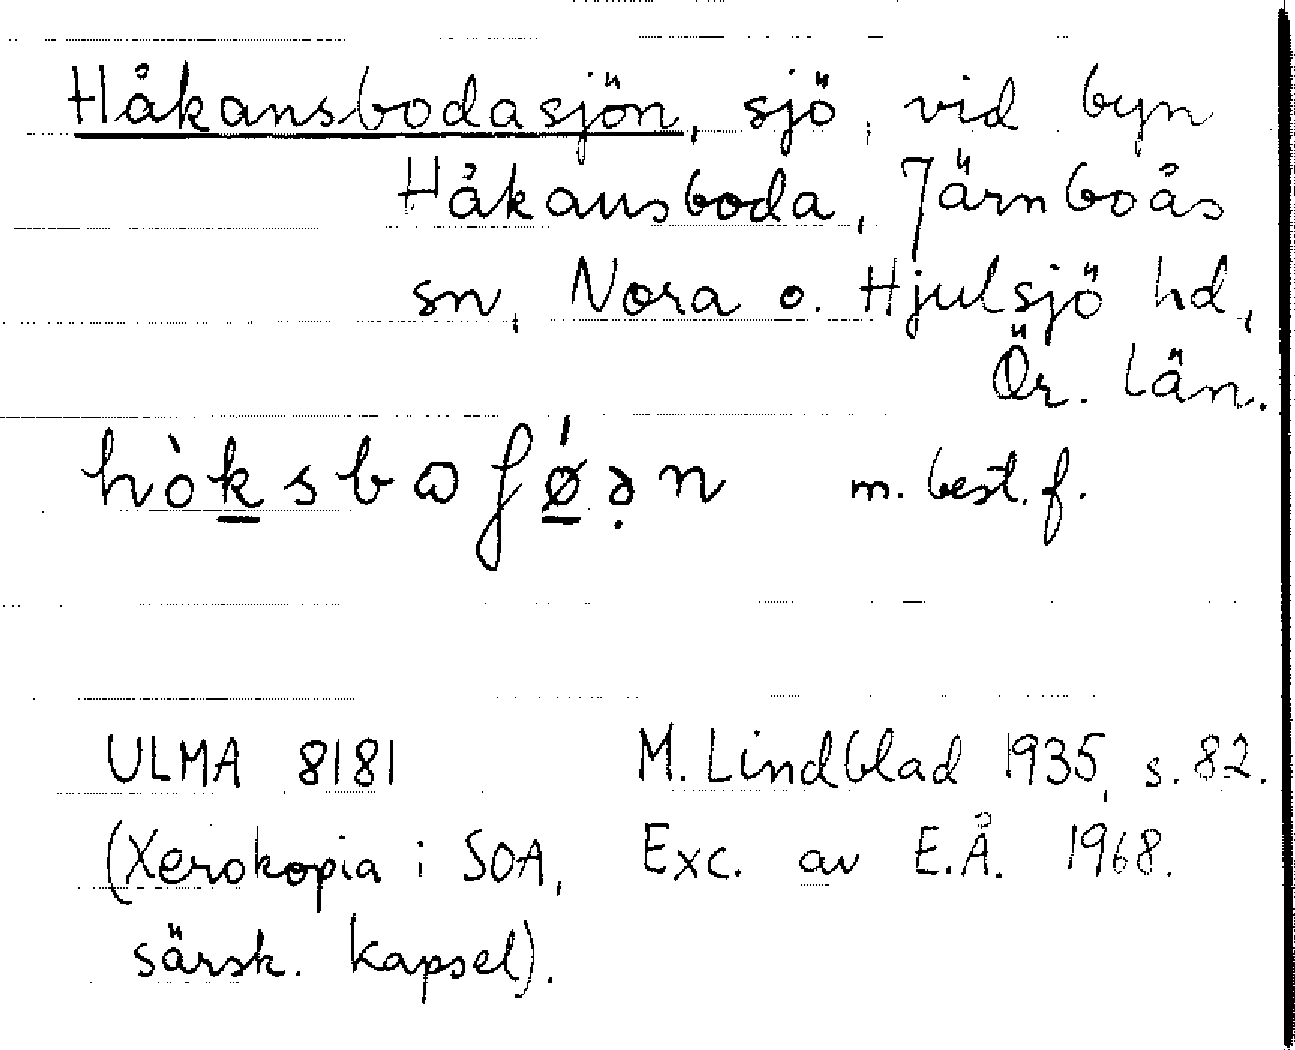 Håkansbodasjön, sjö, vid byn
Håkansboda, Järnboås
sn, Nora o. Hjulsjö hd,
Ör. län.
hòk̲sbɷʃǿ̲ə̣n m. best. f.
ULMA 8181 M. Lindblad 1935, s. 82.
(Xerokopia i SOA, Exc. av E.Å. 1968.
särsk. kapsel).